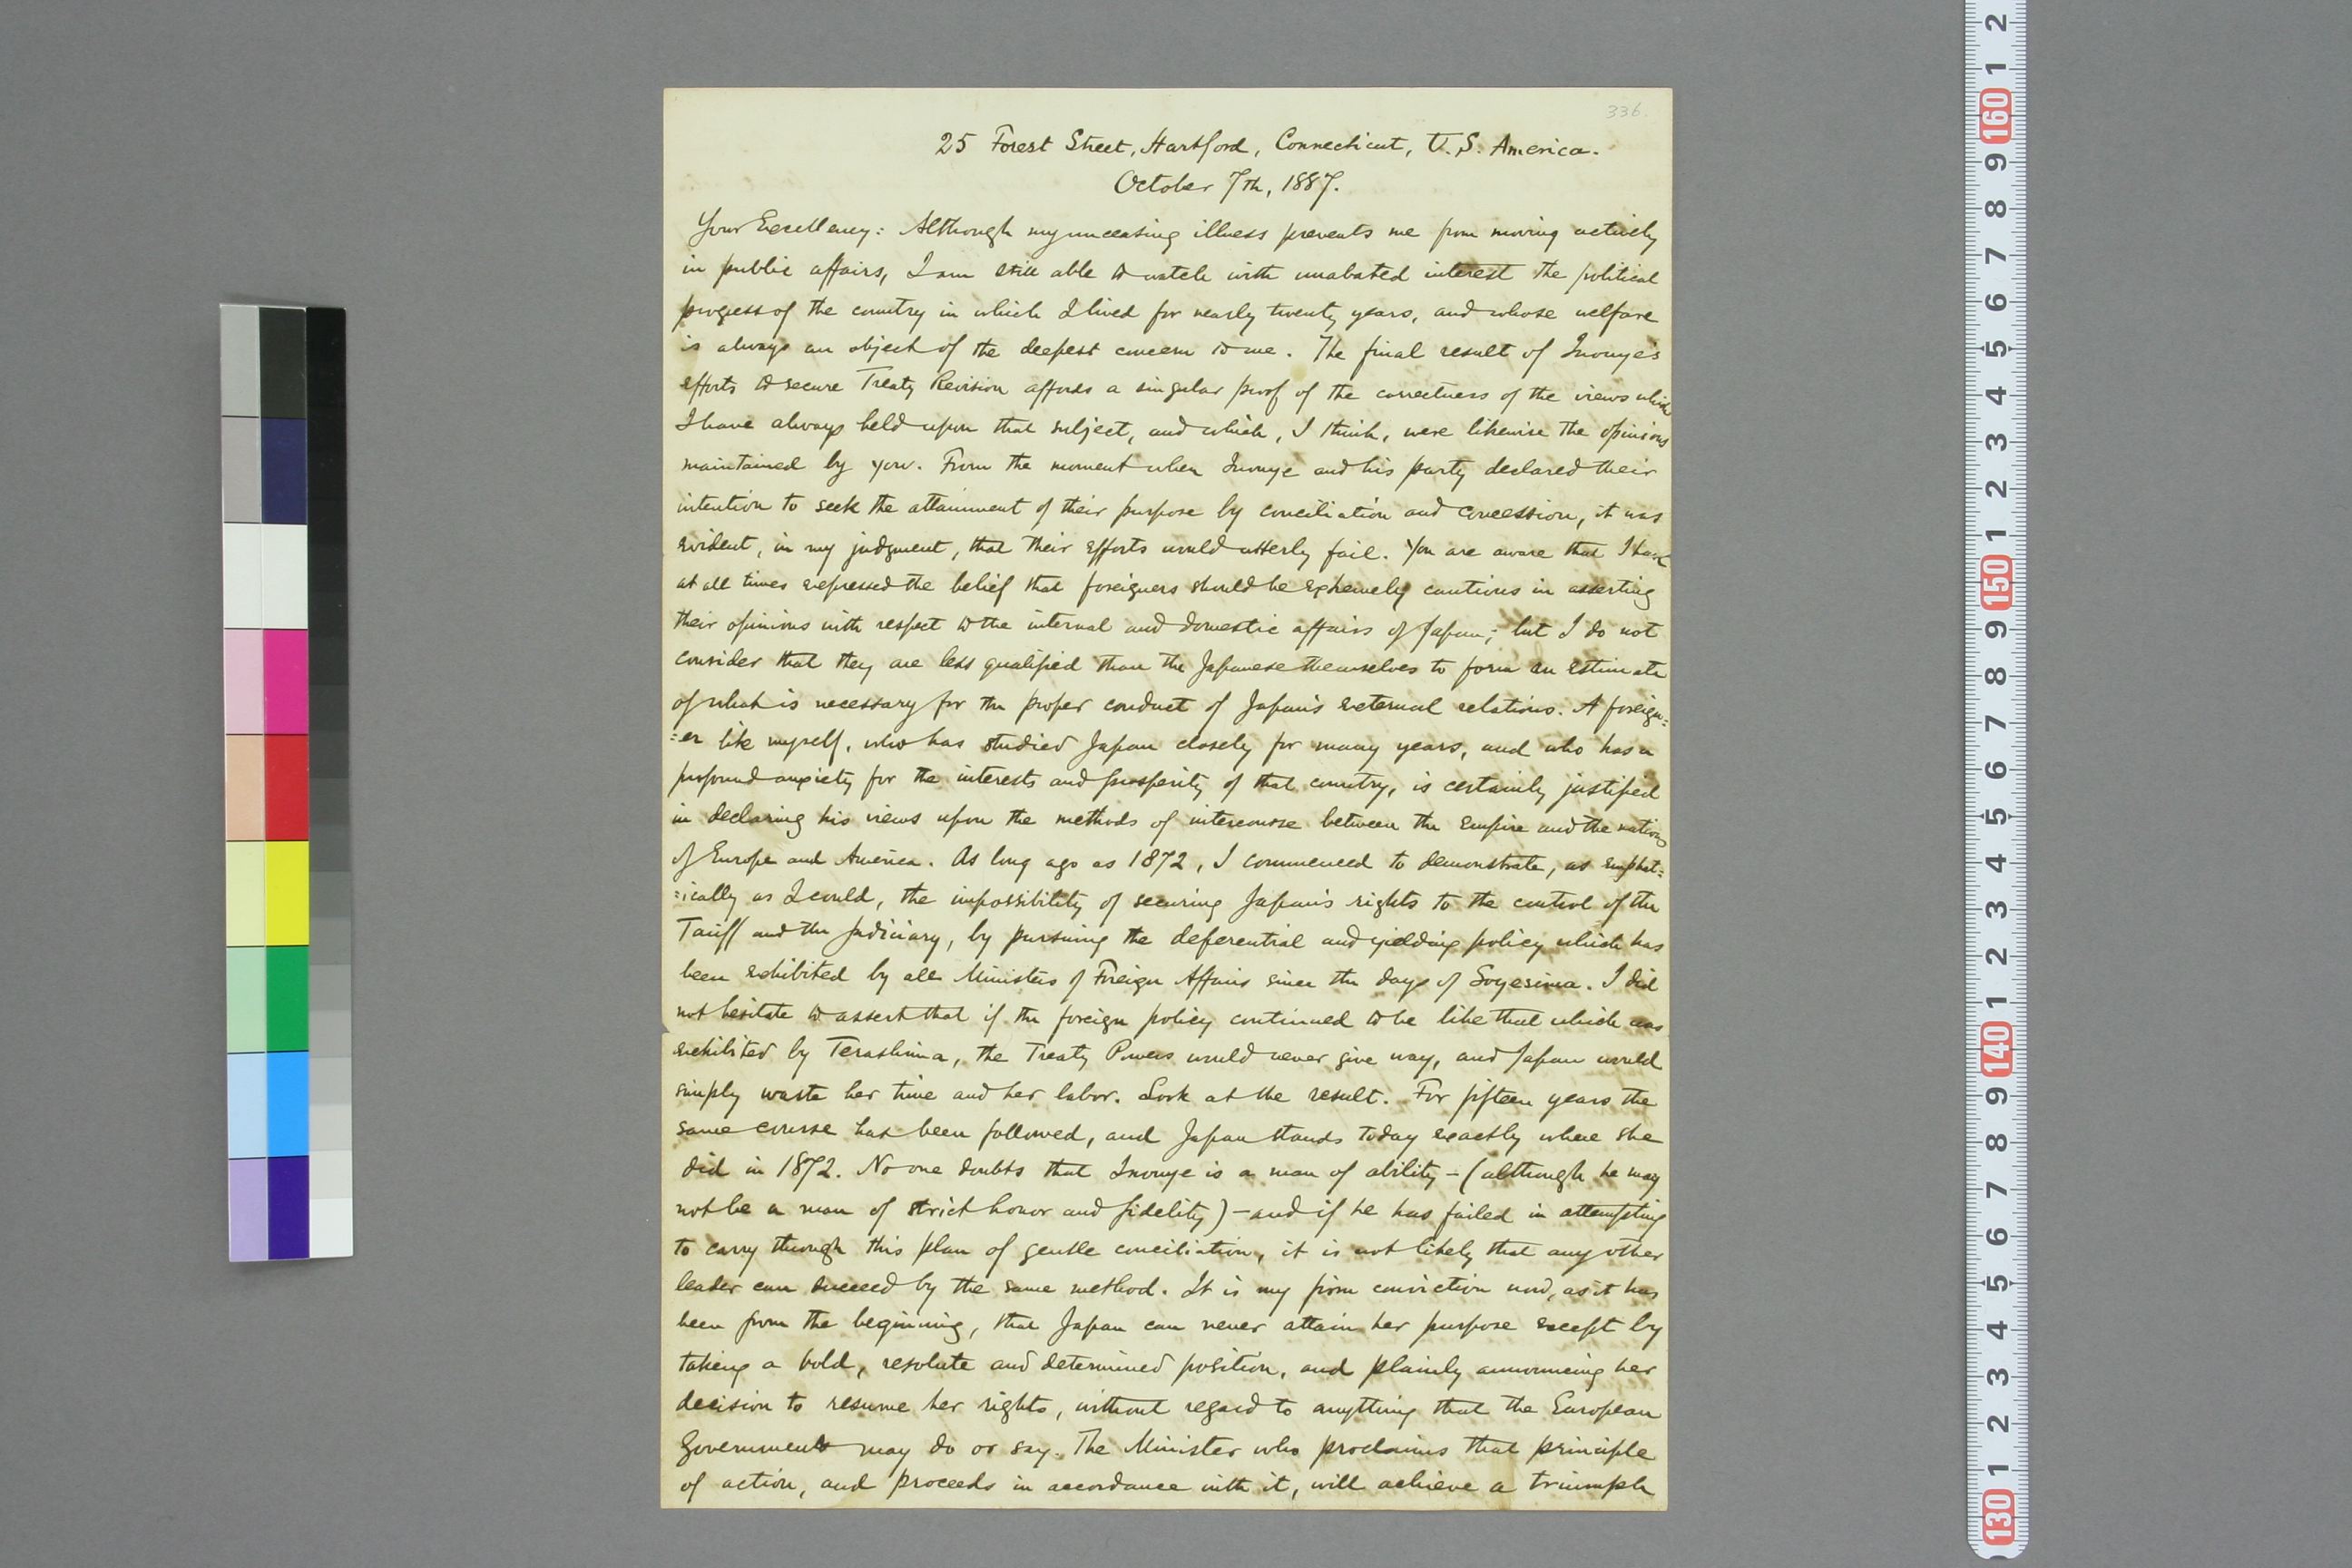 336.
25 Forest Street, Hartford, Connecticut, U.S. America.
October 7th, 1887.
Your Excellency: Although my unceasing illness prevents me from moving actively
in public affairs, I am still able to watch with unabated interest the political
progress of the country in which I lived for nearly twenty years, and whose welfare
is always an object of the deepest concern to me. The final result of Inouye's
efforts to secure Treaty Revision affords a singular proof of the correctness of the views which
I have always held upon that subject, and which, I think, were likewise the opinions
maintained by you. From the moment when Inouye and his party declared their
intention to seek the attainment of their purpose by conciliation and concession, it was
evident, in my judgment, that their efforts would utterly fail. You are aware that I have
at all times expressed the belief that foreigners should be extremely cautious in asserting
their opinions with respect to the internal and domestic affairs of Japan; but I do not
consider that they are less qualified than the Japanese themselves to form an estimate
of what is necessary for the proper conduct of Japan's external relations. A foreign=
=er like myself, who has studied Japan closely for many years, and who has a
profound anxiety for the interests and prosperity of that country, is certainly justified
in declaring his views upon the methods of intercourse between the Empire and the nations
of Europe and America. As long ago as 1872, I commenced to demonstrate, as emphat=
=ically as I could, the impossibility of securing Japan's rights to the control of the
Tariff and the Judiciary, by pursuing the deferential and yielding policy which has
been exhibited by all Ministers of Foreign Affairs since the days of Soyesima. I did
not hesitate to assert that if the foreign policy continued to be like that which was
exhibited by Terashima, the Treaty Powers would never give way, and Japan would
simply waste her time and her labor. Look at the result. For fifteen years the
same course has been followed, and Japan stands today exactly where she
did in 1872. No one doubts that Inouye is a man of ability – (although he may
not be a man of strict honor and fidelity) – and if he has failed in attempting
to carry through this plan of gentle conciliation, it is not likely that any other
leader can succeed by the same method. It is my firm conviction now, as it has
been from the beginning, that Japan can never attain her purpose except by
taking a bold, resolute and determined position, and plainly announcing her
decision to resume her rights, without regard to anything that the European
Governments may do or say. The Minister who proclaims that principle
of action, and proceeds in accordance with it, will achieve a triumph
2
1
160
9
8
7
6
5
4
3
2
1
150
9
8
7
6
5
4
3
2
1
140
9
8
7
6
5
4
3
2
1
130